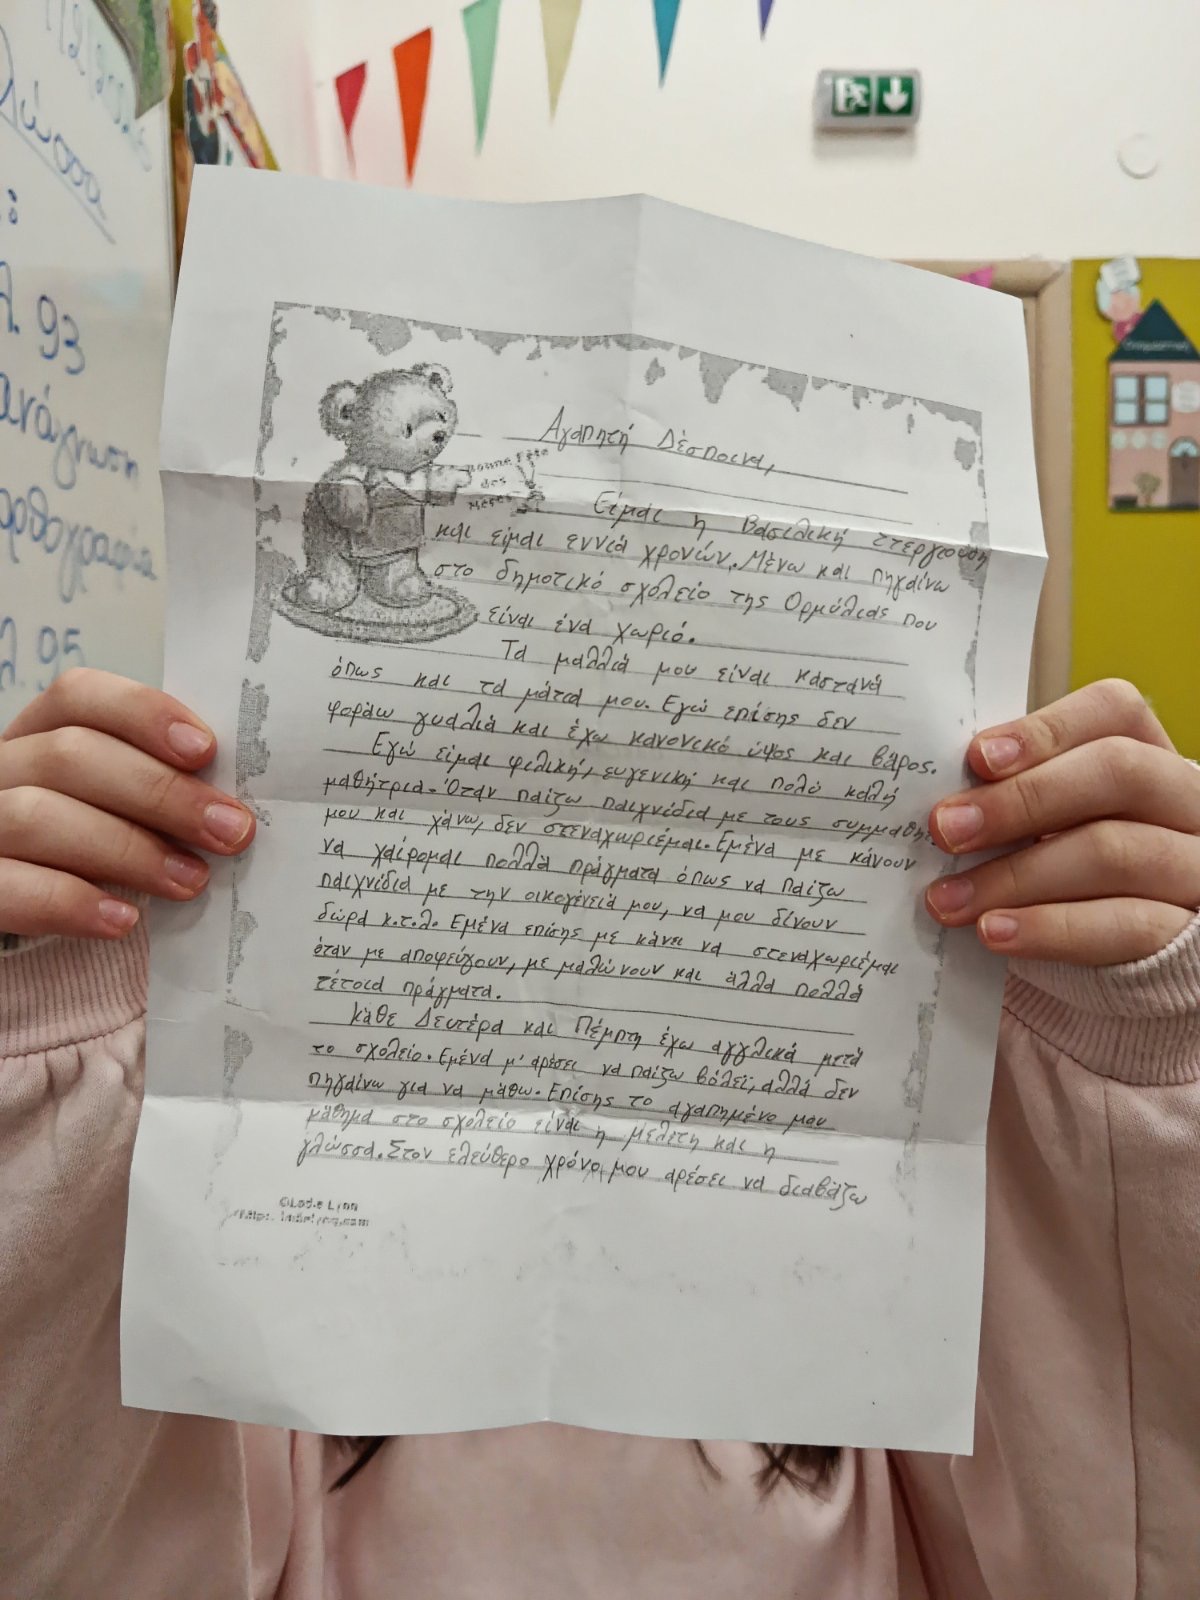 Γλώσσα
λ. 93
ανάγνωση
ορθογραφία
λ. 95
Αγαπητή Δέσποινα,
Bonne Fête
des
Mères
Είμαι η Βασιλική Στεργιούδη
και είμαι εννιά χρονών. Μένω και πηγαίνω
στο δημοτικό σχολείο της Ορμύλιας που
είναι ένα χωριό.
Τα μαλλιά μου είναι καστανά
όπως και τα μάτια μου. Εγώ επίσης δεν
φοράω γυαλιά και έχω κανονικό ύψος και βάρος.
Εγώ είμαι φιλική, ευγενική και πολύ καλή
μαθήτρια. Όταν παίζω παιχνίδια με τους
μου και χάνω, δεν στεναχωριέμαι. Εμένα με κάνουν
να χαίρομαι πολλά πράγματα όπως να παίζω
παιχνίδια με την οικογένειά μου, να μου δίνουν
δώρα κ.τ.λ. Εμένα επίσης με κάνει να στεναχωριέμαι
όταν με αποφεύγουν, με μαλώνουν και άλλα πολλά
τέτοια πράγματα.
Κάθε Δευτέρα και Πέμπτη έχω αγγλικά μετά
το σχολείο. Εμένα μ' αρέσει να παίζω βόλεϊ, αλλά δεν
πηγαίνω για να μάθω. Επίσης το αγαπημένο μου
μάθημα στο σχολείο είναι η Μελέτη και η
γλώσσα. Στον ελεύθερο χρόνο μου αρέσει να διαβάζω
©Lad.e Lynn